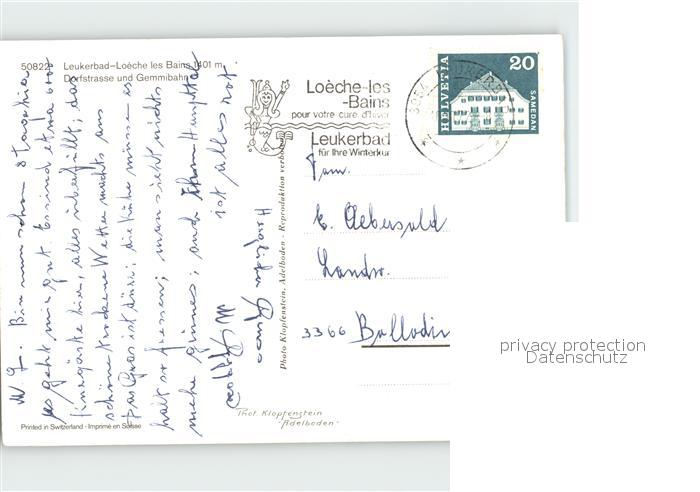 50822 Leukerbad-Loèche les Bains 1401 m
Dorfstrasse und Gemmibahn
Loèche-les
-Bains
pour votre cure d'hiver
Leukerbad
für Ihre Winterkur
3954 LEUKERBAD
HELVETIA
20
SAMEDAN
M. L. Bin nun schon 8 Tage hier
es geht mir gut. Es sind etwa 6000
gäste hier, alles überfüllt; das
schöne trockene Wetter machts aus
Das Gras ist dürr; die Kühe müssen
halt so fressen; man sieht nichts
mehr grünes; auch Haupttal
ist alles rot.
Photo Klopfenstein, Adelboden - Reproduktion verboten
Fam.
E. Aebersold
Landw.
3366 Bollodin
Phot. Klopfenstein
"Adelboden"
Printed in Switzerland - Imprimé en Suisse
privacy protection
Datenschutz